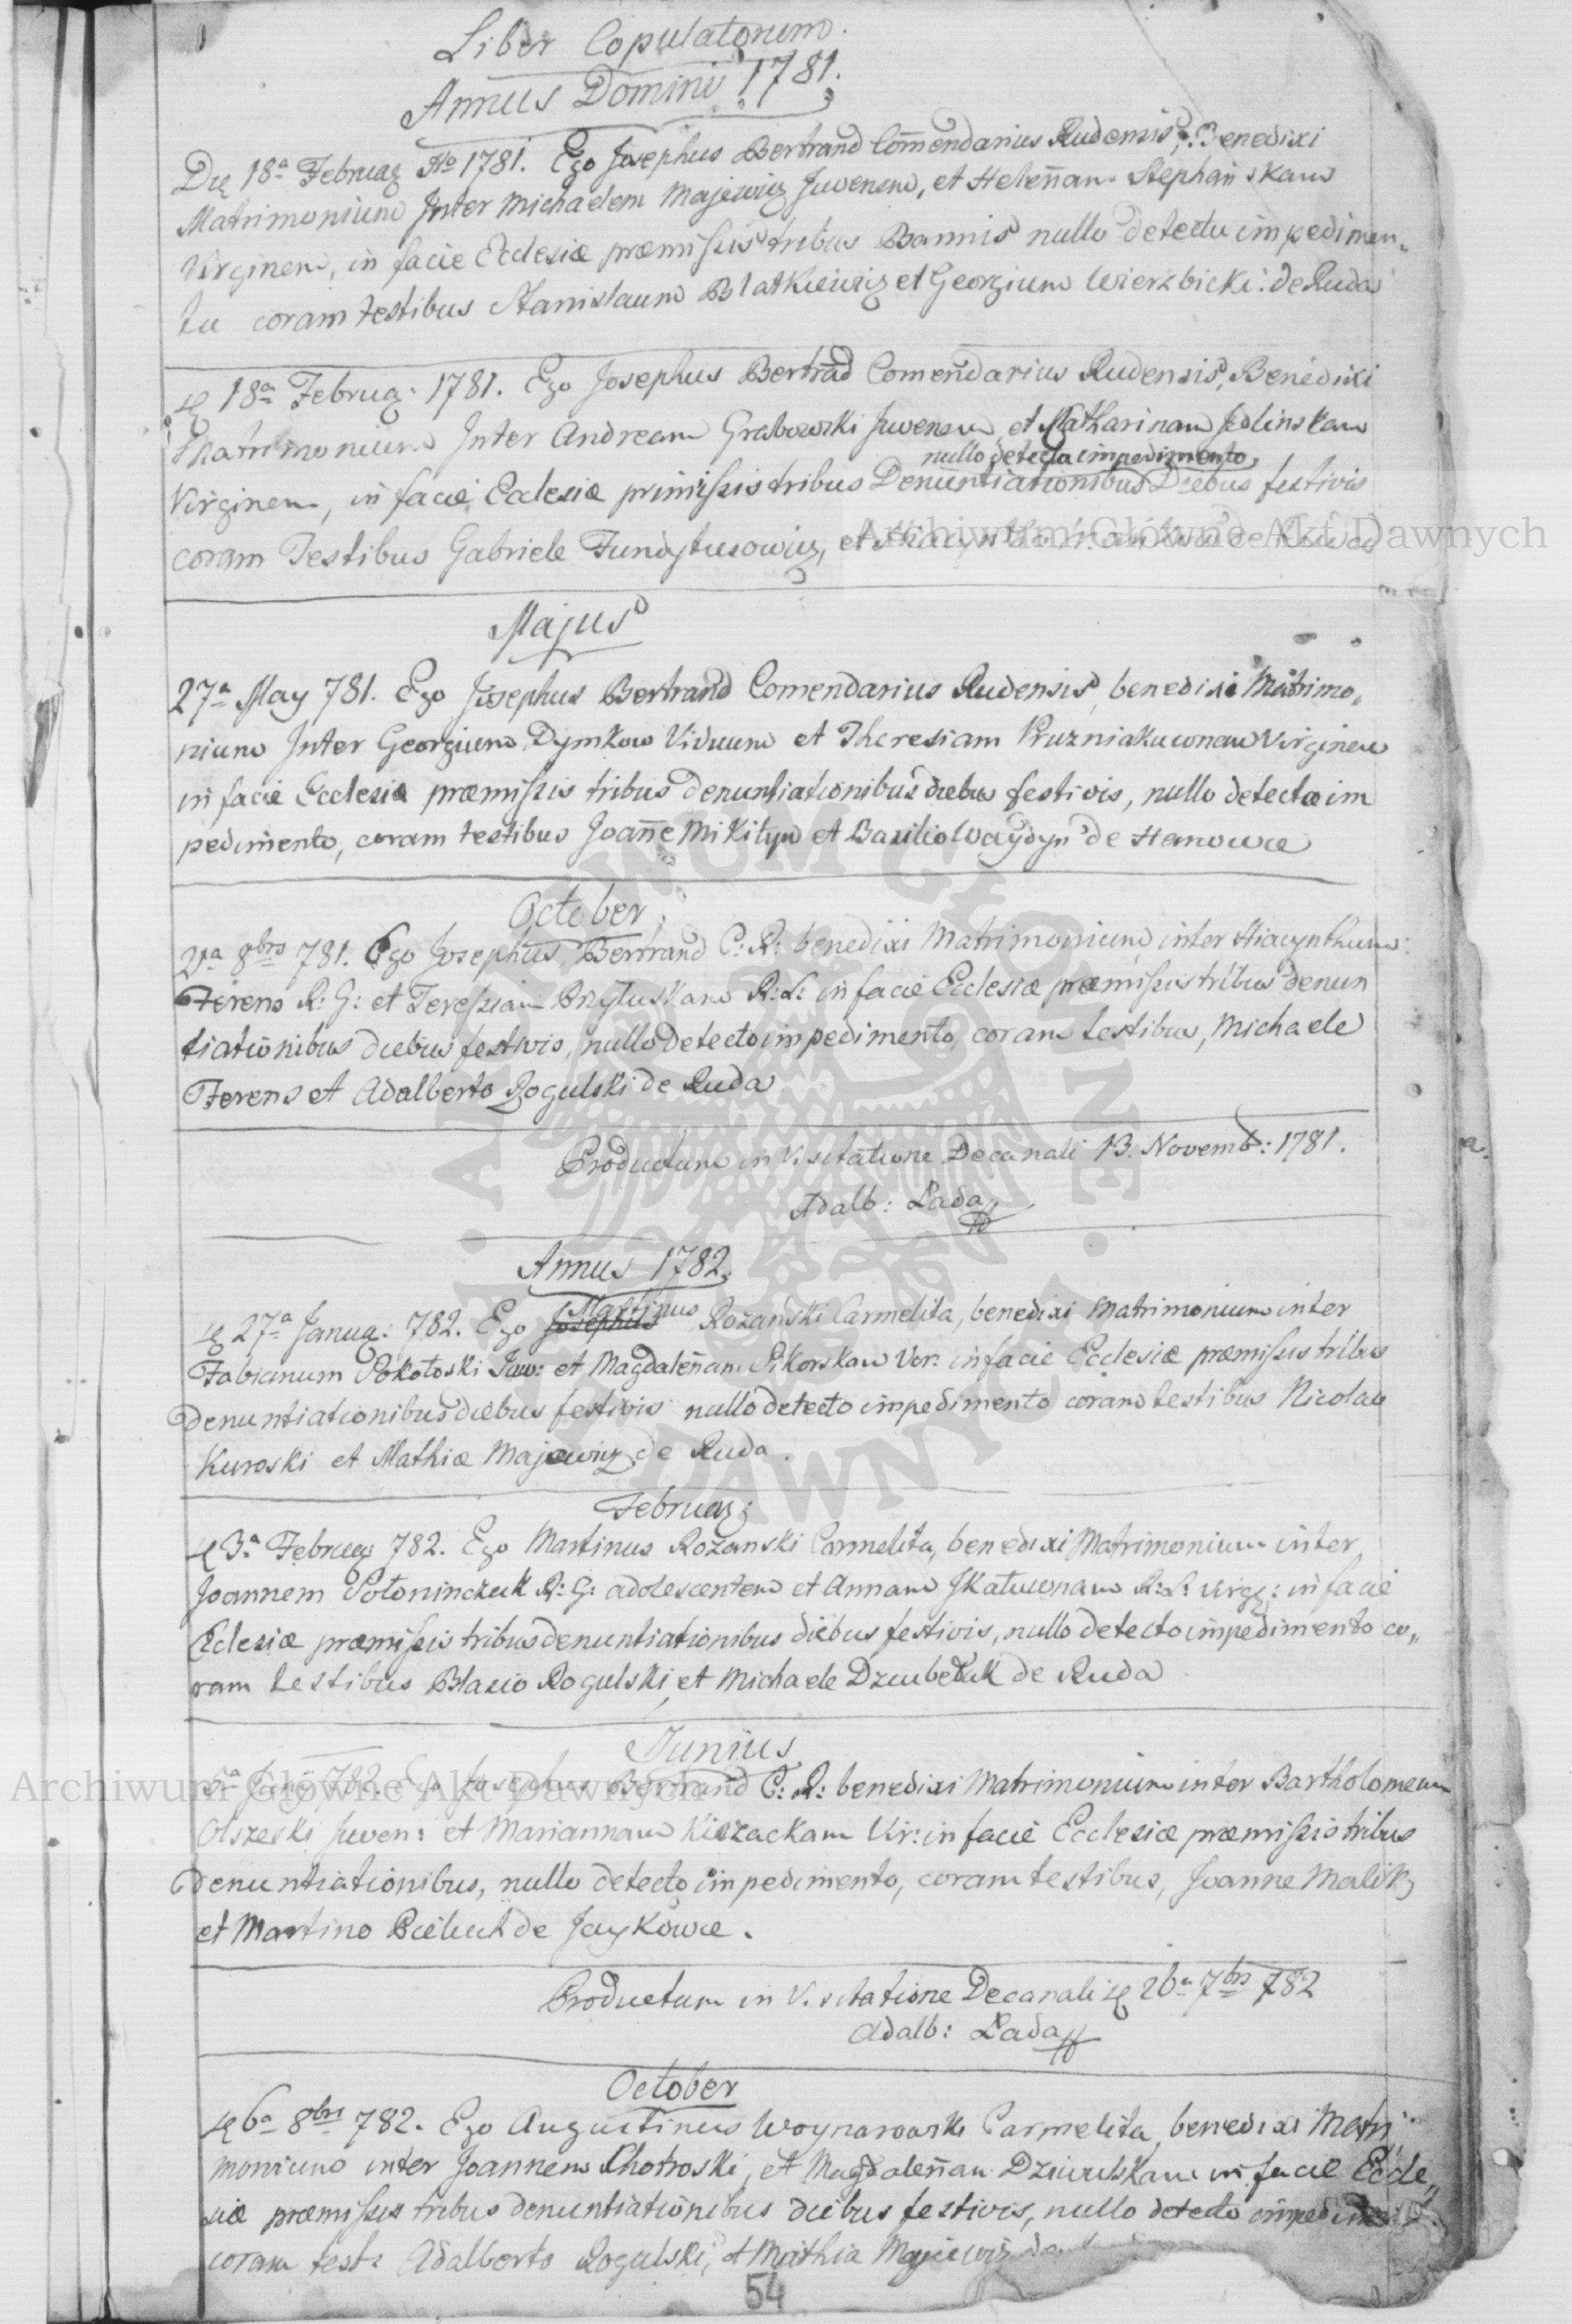 Liber Copulatorum.
Annus Domini 1781.
Die 18a Februar A̅o 1781. Ego Josephus Bertrand Com̅endarius Rudensis, Benedixi
Matrimonium Inter Michaelem Majewicz Juvenem, et Helen̅am Stephańskam
Virginem, in facie Ecclesiæ præmissis tribus Bannis nullo detectu impedimen„
tu coram testibus Stanislaum Blatkiewicz et Georgium Wierzbicki: de Ruda
18a Februa: 1781. Ego Josephus Bertrad Comendarius Rudensis, Benedixi
Matrimonium Inter Andream Grabowski Juvenem et Katharinam Jedlinskam
nullo detecto impedimento,
Virginem, in facie Eclesiæ primissis tribus Denuntiationibus Diebus festivis
coram Testibus Gabriele Fundytusowicz, et
Archiwum Główne Akt Dawnych
Majus
27a May 781. Ego Josephus Bertrand Comendarius Rudensis, benedixi Matrimo„
nium Inter Georgium Dymkow Viduum et Theresiam Pruzniakuwnam Virginem
in facie Ecclesiæ præmissis tribus denuntiationibus diebus festivis, nullo detecto im
pedimento, coram testibus Joan̅e Mikityn et Basilio Waydyn de Hanowce
October
21a 8brs 781. Ego Josephus Bertrand C: R: benedixi Matrimonium inter Hiacynthum
Ferens R: G: et Teressiam Przyłuskam R: L: in facie Ecclesiæ præmissis tribus denun
tiationibus diebus festivis, nullo detecto impedimento, coram testibus, Michaele
Ferens et Adalberto Rogulski de Ruda
Productum in Visitatione Decanali 13. Novemb: 1781.
Adalb: Łada
Annus 1782.
27a Janua: 782. Ego Josephus Martinus Rozański Carmelita, benedixi Matrimonium inter
Fabianum Sokołoski Juv: et Magdalen̅am Sikorskam Vir: in facie Ecclesiæ præmissis tribus
denuntiationibus diebus festivis nullo detecto impedimento coram testibus Nicolao
Kuroski et Mathia Majewicz de Ruda.
Februar:
3a Februar 782. Ego Martinus Rozanski Carmelita, benedixi Matrimonium inter
Joannem Połoninczuk R: G: adolescentem et Annam Jkałuwnam R: L: Virg: in facie
Eclesiæ præmissis tribus denuntiationibus diebus festivis, nullo detecto impedimento co„
ram testibus Blasio Rogulski, et Michaele Dziubebuk de Ruda
Junius
5a Junij 782. Ego Josephus Bertrand C: R: benedixi Matrimonium inter Bartholomeum
Archiwum Główne Akt Dawnych
Olszeski Juven: et Mariannam Kiszackam Vir: in facie Ecclesiæ præmissis tribus
denuntiationibus, nullo detecto impedimento, coram testibus, Joanne Malik,
et Martino Bielut de Jaykowce.
Productum in Visitatione Decanali 26a 7brs 782
Adalb: Łada
October
6a 8bris 782. Ego Augustinus Woynarowski Carmelita, benedixi Matri
monium inter Joannem Chotroski, et Magdalen̅am Dziurskam in facie Eccle„
siæ præmissis tribus denuntiationibus diebus festivis, nullo detecto
coram test: Adalberto Rogulski, et Mathia Majewicz
54